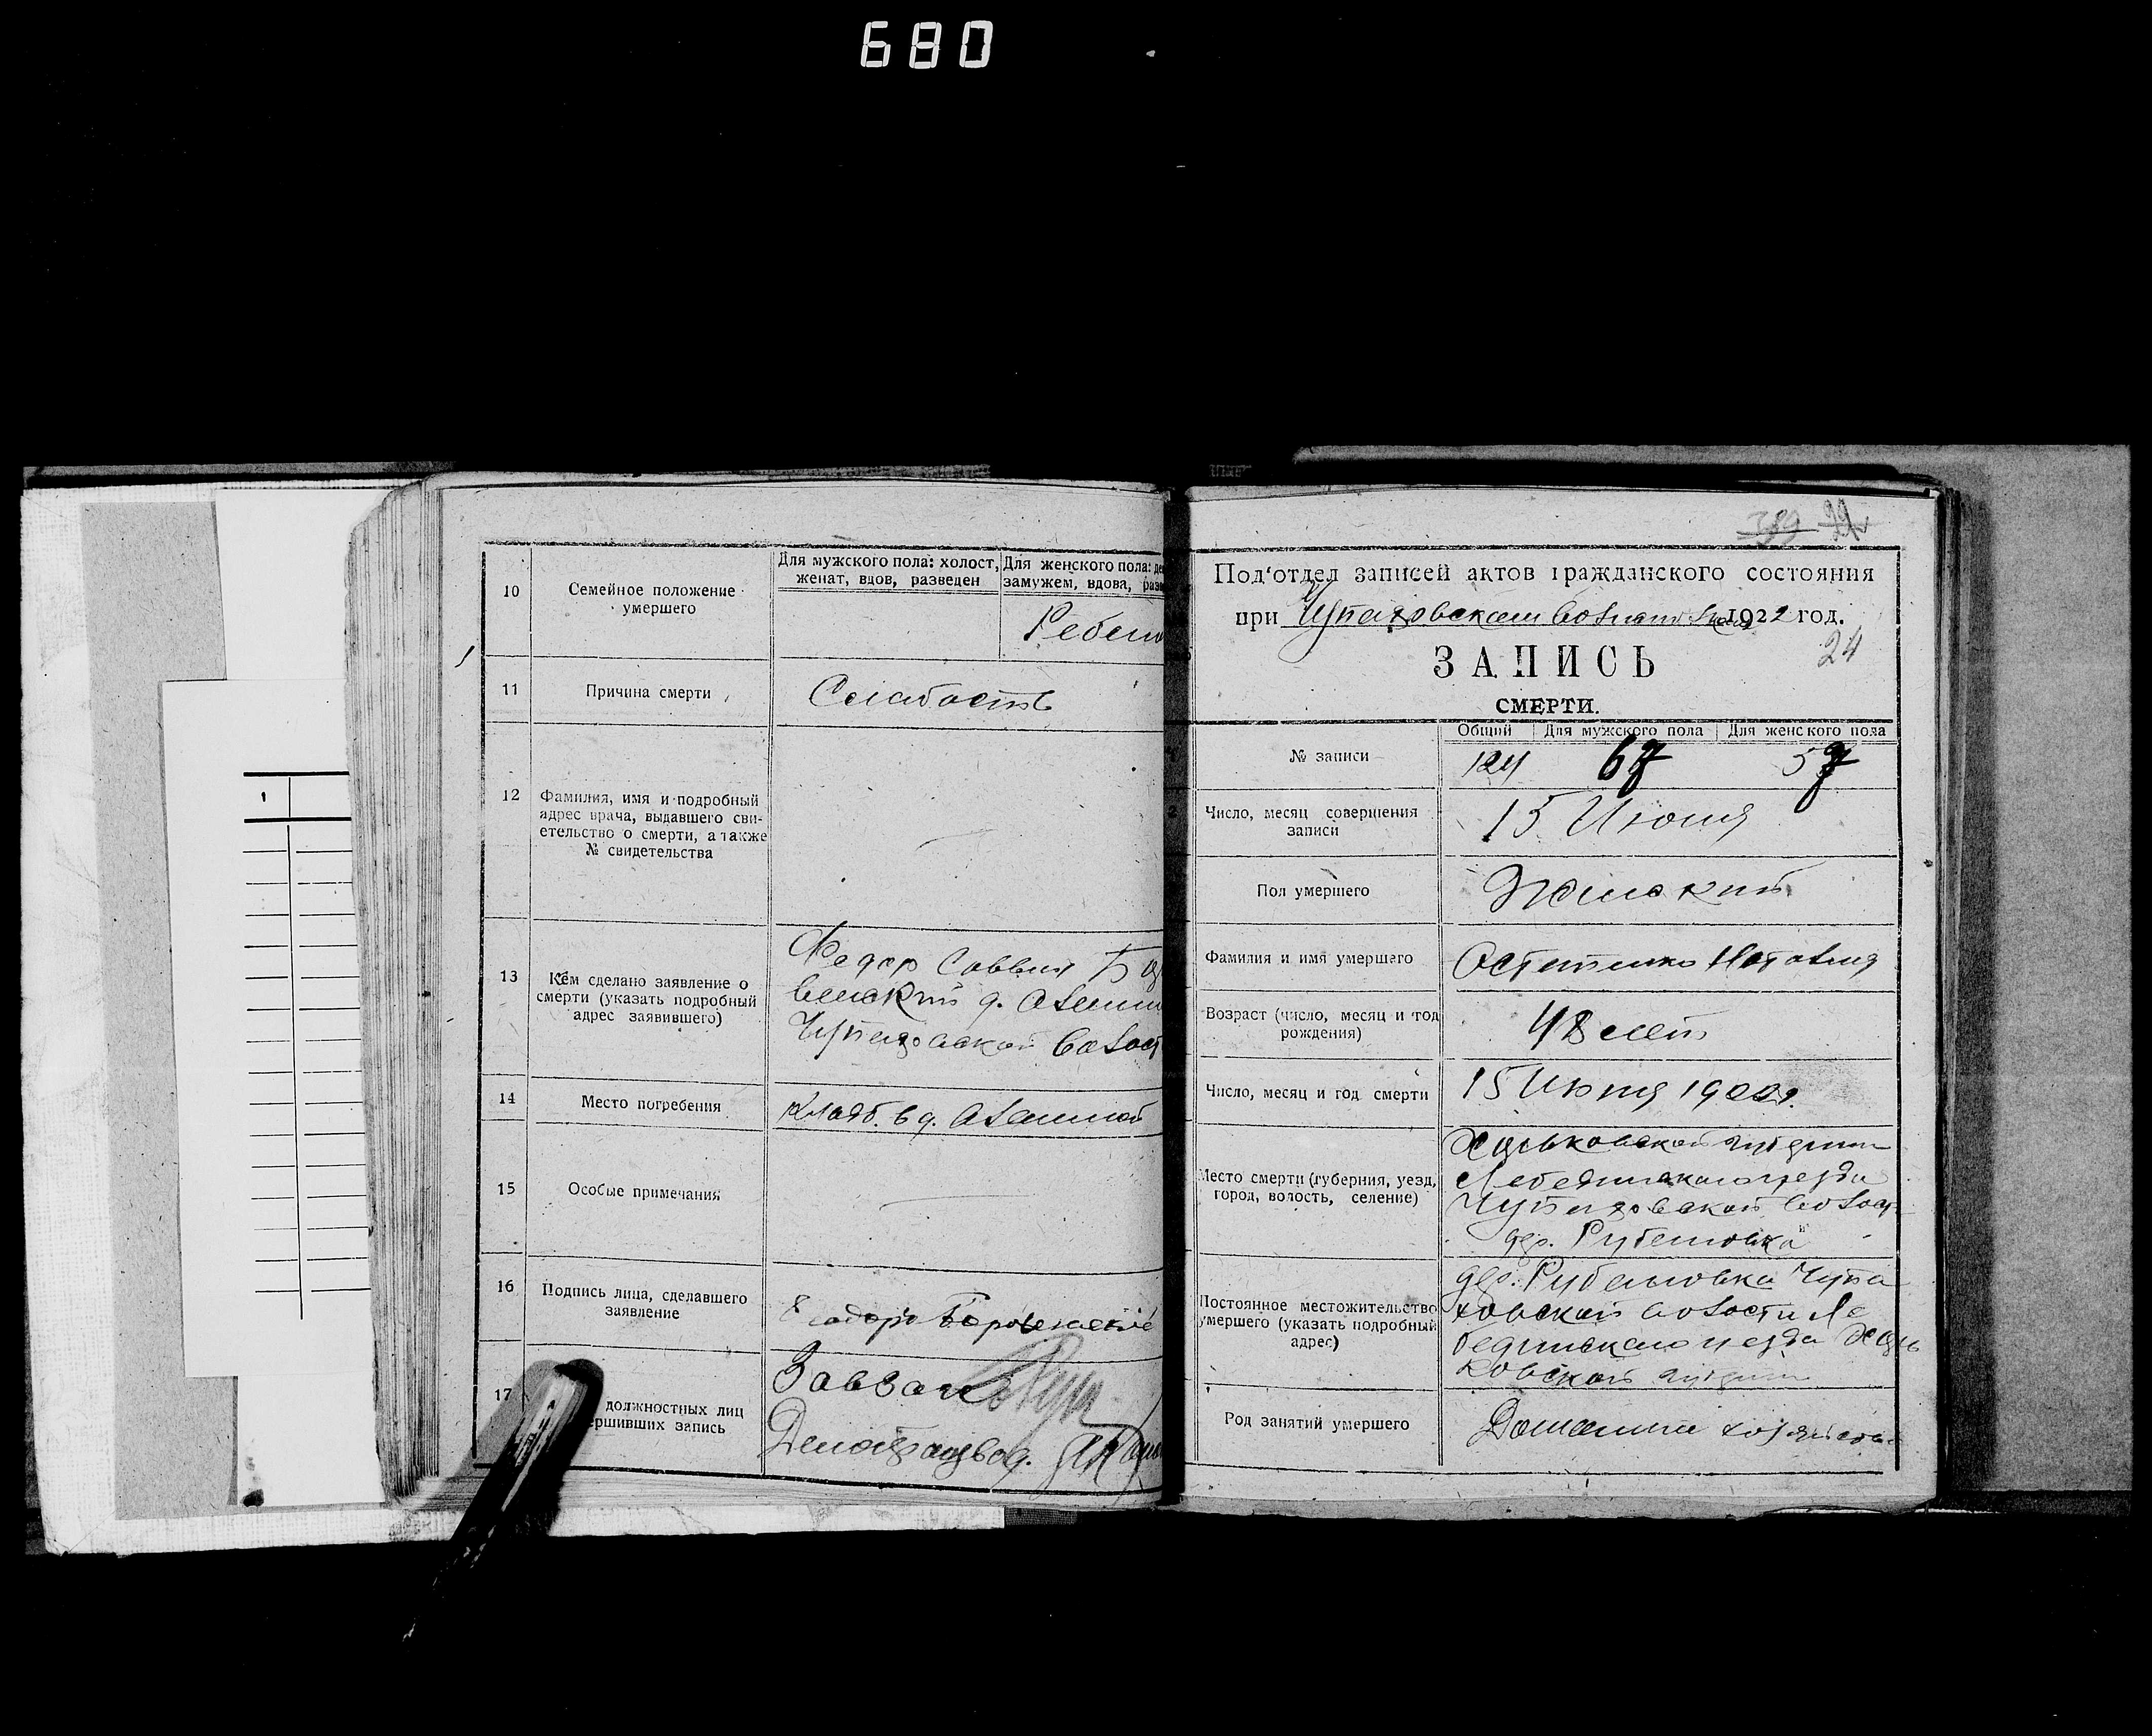 680
10
Семейное положение умершего
Для мужского пола: холост, женат, вдов, разведен
Для женского пола: замужем, вдова,
11
Причина смерти
Слабость
12
Фамилия, имя и подробный
адрес врача, выдавшего сви-
етельство о смерти, а также
№ свидетельства
13
Кем сделано заявление о
смерти (указать подробный
адрес заявившего)
Федор Саввич
д.
Чупаховской волост
14
Место погребения
кладб. в д.
15
Особые примечания
16
Подпись лица, сделавшего
заявление
17
должностных лиц
ершивших запись
Завзаг
389
Под‘отдел записей актов гражданского состояния
при Чупаховском 1922 год.
24
ЗАПИСЬ
СМЕРТИ.
Общий Для мужского пола Для женского пола
№ записи
124 67 57
Число, месяц совершения
записи
15 Июня
Пол умершего
Женский
Фамилия и имя умершего
Остапенко Наталия
Возраст (число, месяц и год
рождения)
48 лет
Число, месяц и год смерти
15 Июня 1922
Место смерти (губерния, уезд,
город, волость, селение)
Харьковской губернии
Лебединского уезда
Чупаховской волост
дер. Рубановка
Постоянное местожительство
умершего (указать подробный
адрес)
дер. Рубановка Чупа
ховской волости Ле
бединского уезда Харь
ковской губернии
Род занятий умершего
Домашнее хозяйство